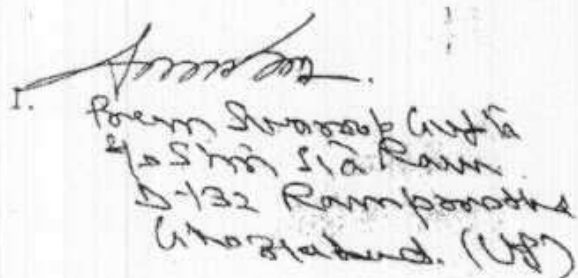 1.
Prem Swaroop Gupta
S/o Shri Sia Ram
D-132 Ramprastha
Ghaziabad. (UP)